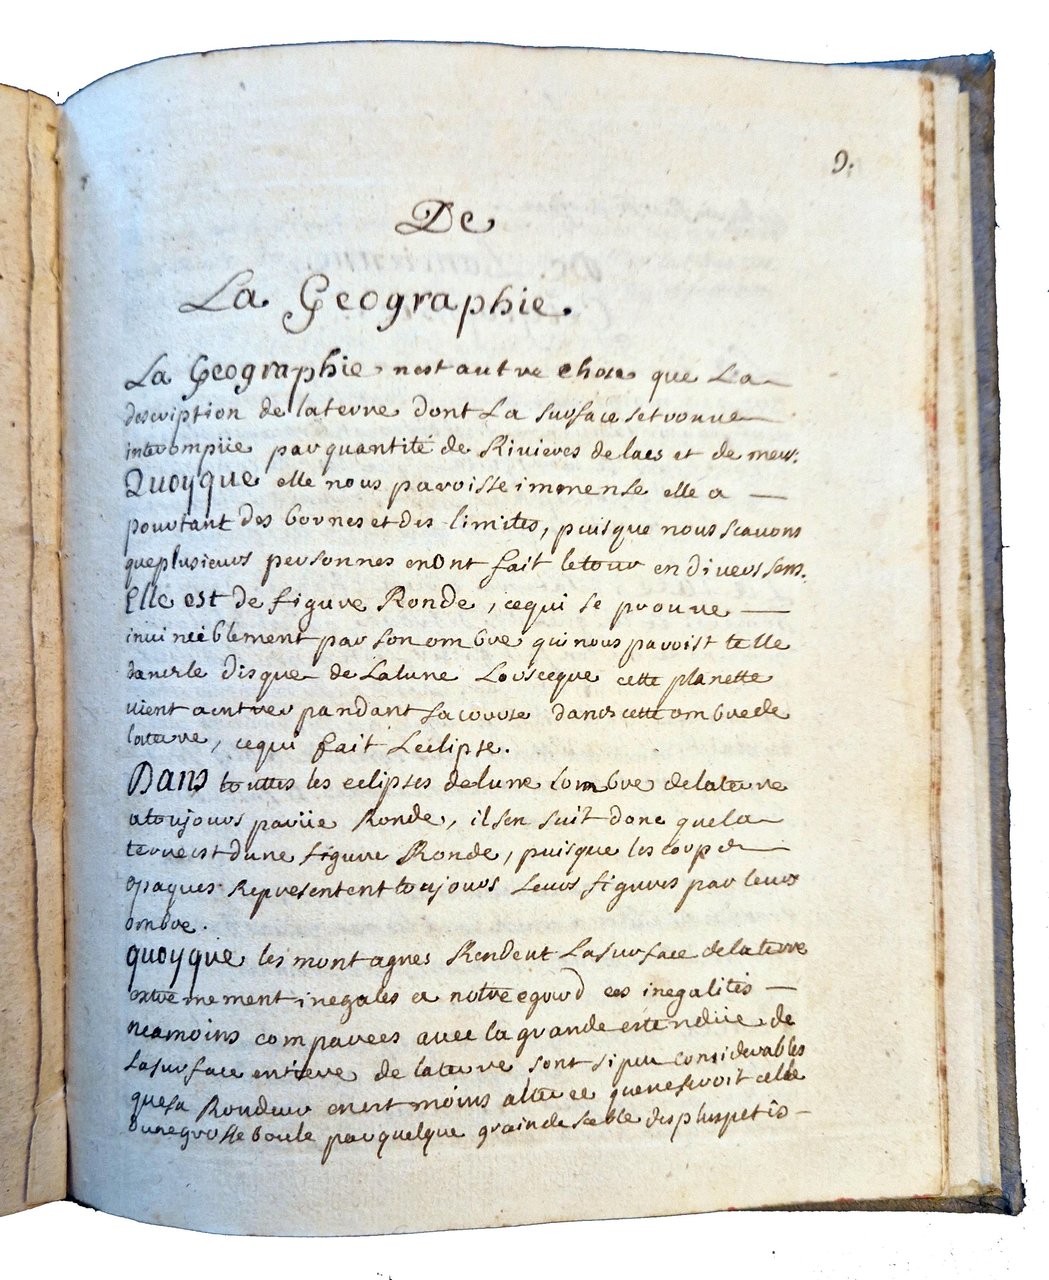 9.
De
La Geographie.
La Geographie nest autre chose que La
description de laterre dont La surface setrouue
interompüe par quantité de Riuieres de lacs et de mers.
Quoyque elle nous paroisse immense elle a
pourtant des bornes et des limites, puisque nous scauons
que plusieurs personnes enont fait letour en diuers sens.
Elle est de figure Ronde, cequi se prouue
inuinciblement par son ombre qui nous paroist telle
dans le disque de Lalune Lorsceque cette planette
uient a entrer pandant sa course dans cette ombre de
laterre, cequi fait Leclipse.
Dans touttes les eclipses delune Lombre de laterre
atoujours parüe Ronde, il sen suit donc que la
terre est dune figure Ronde, puisque les corps
opaques Representent toujours leurs figures par leurs
ombre.
quoyque les montagnes Rendent La surface de la terre
extremement inegales a notre egard ces inegalités
neamoins comparees auec la grande estendüe de
La surface entiere de laterre sont si peu considerables
quesa Rondeur en est moins alteree que ne seroit celle
dune grosse boule par quelque grain de sable des plus petis